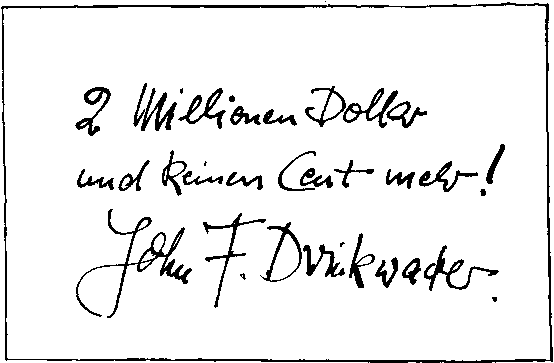 2 Millionen Dollar
und keinen Cent mehr!
John F. Drinkwater.